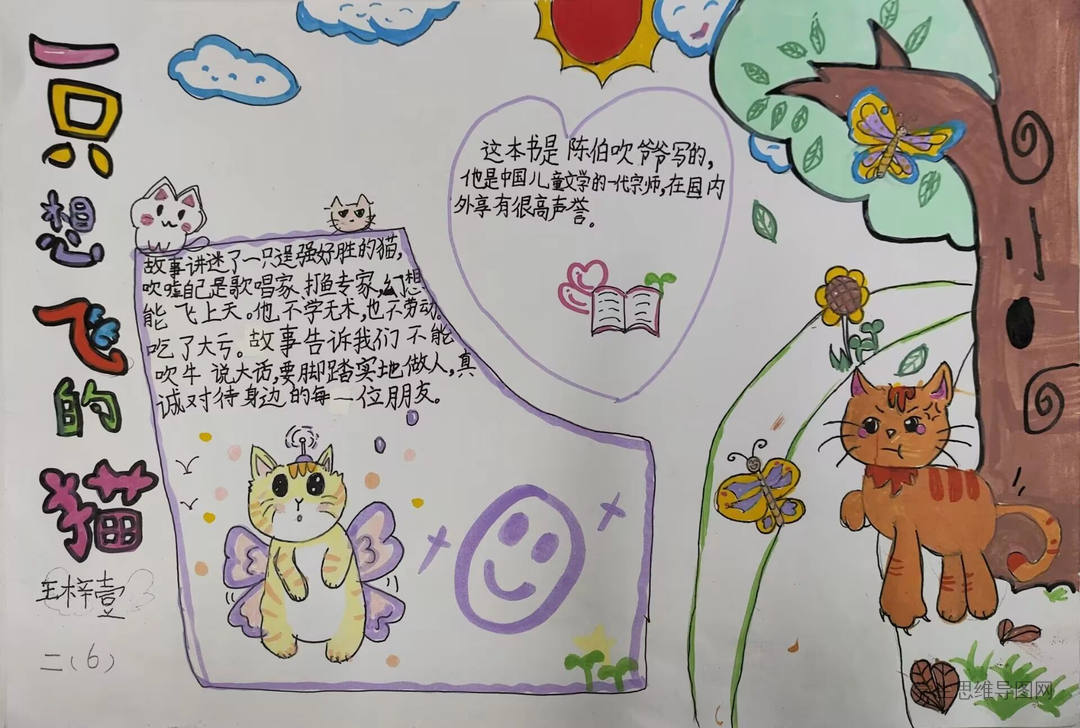 一只想飞的猫
王梓壹
二(6)
故事讲迷了一只逞强好胜的猫,
吹嘘自己是歌唱家、打鱼专家,幻想
能飞上天。他不学无术,也不劳动。
吃了大亏。故事告诉我们不能
吹牛说大话,要脚踏实地做人,真
诚对待身边的每一位朋友。
这本书是陈伯吹爷爷写的,
他是中国儿童文学的一代宗师,在国内
外享有很高声誉。
思维导图网